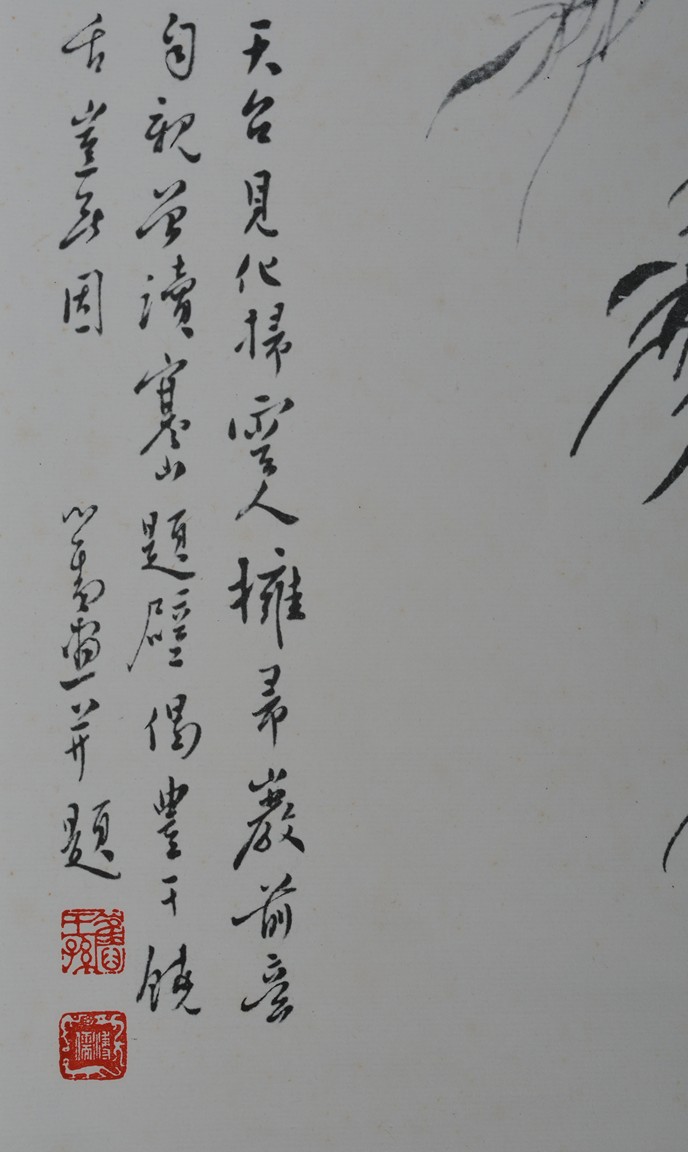 天台見化掃雲人擁帚巖前意
自親曾讀寒山題壁偈豐干饒
舌豈無因
心畬畫并題
舊王孫
溥儒